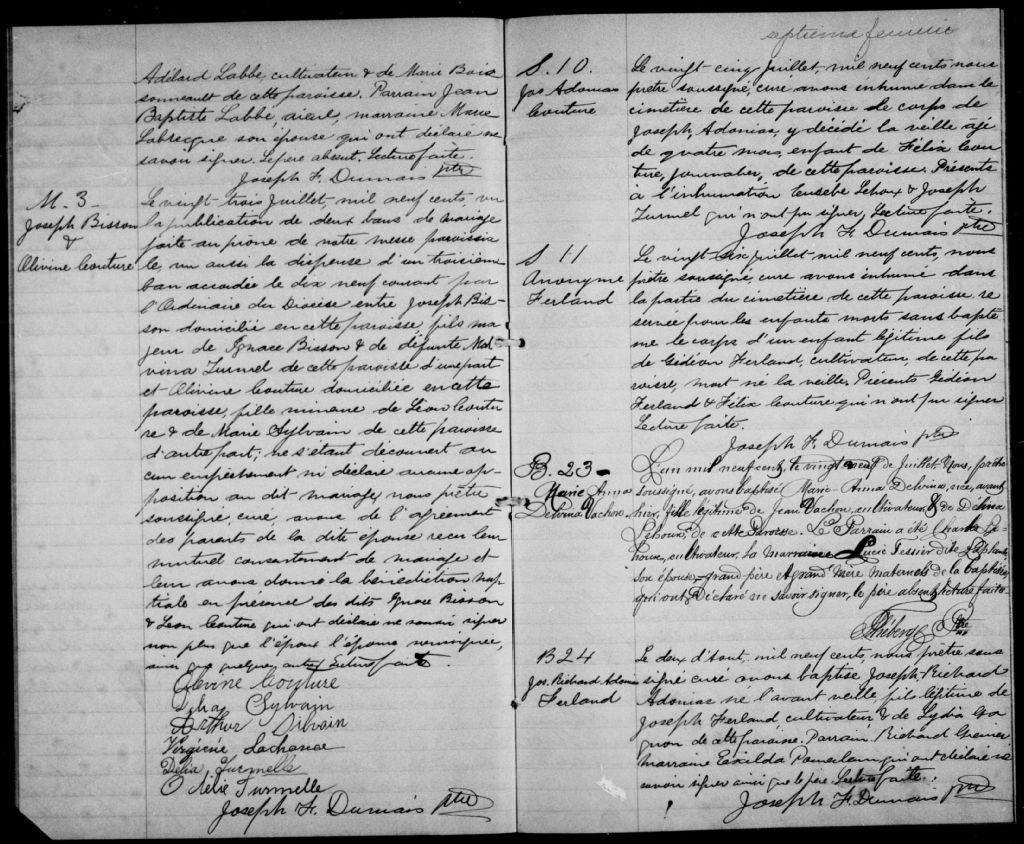 Adélard Labbé, cultivateur & de Marie Bois
sonneault de cette paroisse. Parrain Jean
Baptiste Labbé, aieul, marraine Marie
Labrecque son épouse qui ont déclaré ne
savoir signer. Le père absent. Lecture faite.
Joseph F. Dumais ptre
M. 3 -
Joseph Bisson
&
Olivine Couture
Le vingt trois Juillet, mil neuf cents, vu
la publication de deux bans de mariage
faite au prône de notre messe paroissia
le, vu aussi la dispense d'un troisième
ban accordée le dix neuf courant par
l'Ordinaire du Diocèse entre Joseph Bis-
son domicilié en cette paroisse, fils ma
jeur de Ignace Bisson & de défunte Mal
vina Turmel de cette paroisse d'une part
et Olivine Couture domiciliée en cette
paroisse, fille mineure de Léon Coutu
re & de Marie Sylvain de cette paroisse
d'autre part; ne s'étant découvert au
cun empêchement ni déclaré aucune op-
position au dit mariage, nous prêtre
soussigné, curé, avons de l'agrément
des parents de la dite épouse recu leur
mutuel consentement de mariage et
leur avons donné la bénédiction nup
tiale en présence des dits Ignace Bisson
& Léon Couture qui ont déclaré ne savoir signer
non plus que l'époux l'épouse soussignée,
ainsi que quelques autres Lecture faite.
Olevine Couture
Delia Sylvain
Arthur Silvain
Virginie Lachance
Délia Turmelle
Orélie Turmelle
Joseph F. Dumais ptre
septième feuillet
S. 10.
Jos Adonias
Couture
Le vingt cinq Juillet, mil neuf cents nous
prêtre soussigné, curé avons inhumé dans le
cimetière de cette paroisse le corps de
Joseph, Adonias, y décédé la veille âgé
de quatre mois, enfant de Félix Cou
ture, journalier, de cette paroisse. Présents
à l'inhumation Eusèbe Lehoux & Joseph
Turmel qui n'ont pu signer, Lecture faite.
Joseph F. Dumais ptre
S 11
Anonyme
Ferland
Le vingt six Juillet, mil neuf cents, nous
prêtre soussigné, curé avons inhumé dans
la partie du cimetière de cette paroisse re
servée pour les enfants morts sans baptê
me le corps d'un enfant légitime fils
de Gédéon Ferland, cultivateur, de cette pa
roisse, mort né la veille. Présents Gédéon
Ferland & Félix Couture qui n'ont pu signer
Lecture faite.
Joseph F. Dumais ptre
B. 23 -
Marie Anna
Delvina Vachon
L'an mil neuf cent, le vingt neuf de Juillet, Nous, prêtre
soussigné, avons baptisé Marie-Anna Delvina, née, avant
hier, fille légitime de Jean Vachon, cultivateur, & de Délina
Lehoux, de cette Paroisse. Le Parrain a été Charles Le-
houx, cultivateur, La marraine Lucie Tessier dite
son épouse, grand père et grand mère maternels de la baptisée,
qui ont déclaré ne savoir signer, le père absent, lecture faite.
Théberge Ptre
B 24
Jos. Richard Adonias
Ferland
Le deux d'Août, mil neuf cents, nous prêtre sous
signé curé avons baptisé Joseph, Richard
Adonias né l'avant veille fils légitime de
Joseph Ferland cultivateur & de Lydia Ga
gnon de cette paroisse. Parrain Richard Grenier
Marraine Exilda Pomerleau qui ont déclaré ne
savoir signer ainsi que le père. Lecture faite.
Joseph F. Dumais ptre